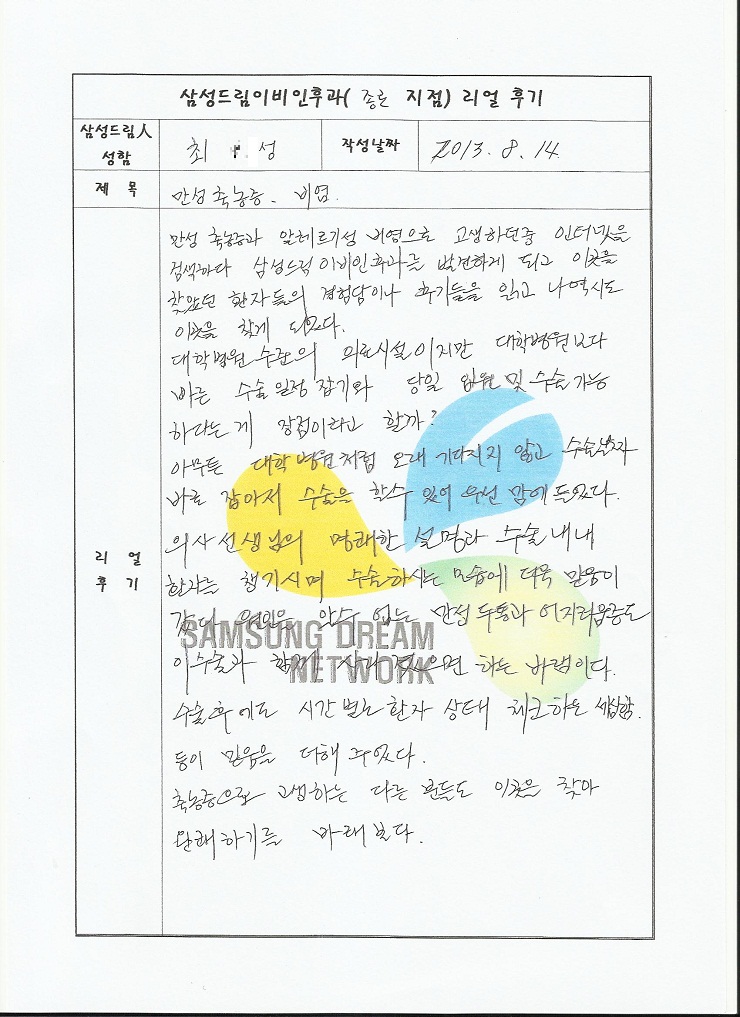 삼성드림이비인후과( 종로 지점) 리얼 후기
삼성드림人 성함
최 성
작성날짜
2013. 8. 14
제 목
만성 축농증. 비염.
리 얼 후 기
만성 축농증과 알레르기성 비염으로 고생하던중 인터넷을
검색하다 삼성드림이비인후과를 발견하게 되고 이곳을
찾았던 환자들의 경험담이나 후기들을 읽고 나역시도
이곳을 찾게 되었다.
대학병원수준의 의료시설이지만 대학병원보다
빠른 수술일정 잡기와 당일 입원 및 수술가능
하다는게 장점이라고 할까?
아무튼 대학병원처럼 오래 기다리지 않고 수술날짜
바로 잡아져 수술을 할수 있어 우선 맘에 들었다.
의사선생님의 명쾌한 설명과 수술내내
환자를 챙기시며 수술하시는 모습에 더욱 믿음이
갔다 원인을 알수 없는 만성 두통과 어지러움증도
이수술과 함께 사라 졌으면 하는 바램이다.
수술후에도 시간별로 환자 상태 체크하는 세심함.
등이 믿음을 더해 주었다.
축농증으로 고생하는 다른 분들도 이곳을 찾아
완쾌하기를 바래본다.
SAMSUNG DREAM
NETWORK